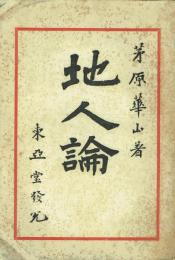 茅原華山著
地人論
東亞堂發兌